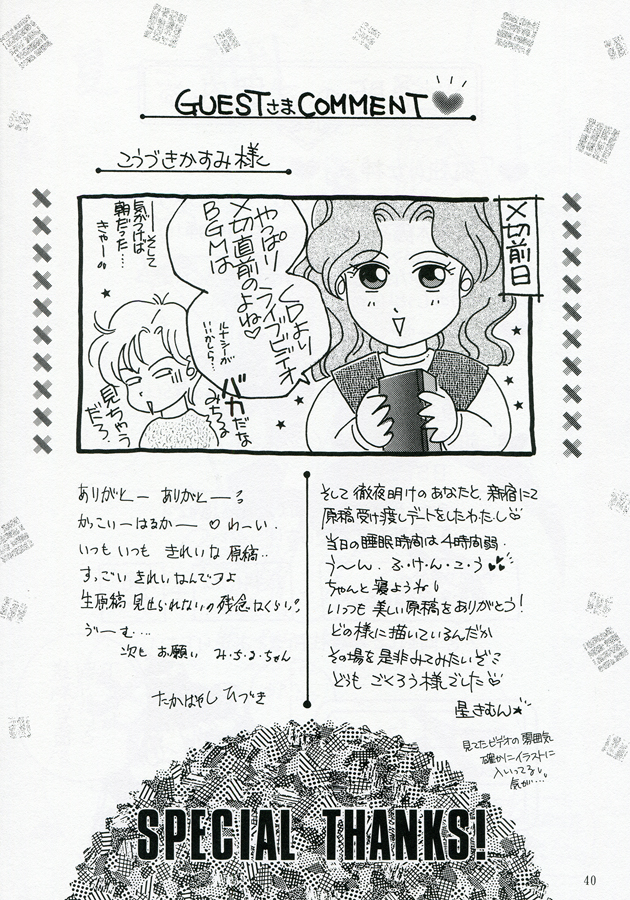 GUESTさまCOMMENT♥
こうづきかすみ様へ
〆切前日
やっぱり
〆切直前の
BGMは
CDより
ライブビデオ
よね♡
ルナシーが
いいかしら…
バカだな
みちるは
見ちゃう
だろ。
―そして
気がつけば
朝だった…
きゃー
ありがとー ありがとー
かっこいーはるかー ♡ わーい.
いつも いつも きれいな 原稿..
すっごい きれいなんですよ
生原稿 見せられないの残念なくらい。
ゔーむ…
次も お願い み・ち・る・ちゃん
たかはやし ひづき
そして 徹夜明けのあなたと、新宿にて
原稿受け渡しデートをしたわたし
当日の睡眠時間は4時間弱.
う～ん. ふ・け・ん・こ・う
ちゃんと 寝ようね
いつも 美しい原稿をありがとう!
どの様に描いているんだか
その場を是非みてみたいぞ
どうも ごくろう様でした
星きむん☆
見てたビデオの雰囲気
確かにイラストに
入いってる
気が…
SPECIAL THANKS!
40